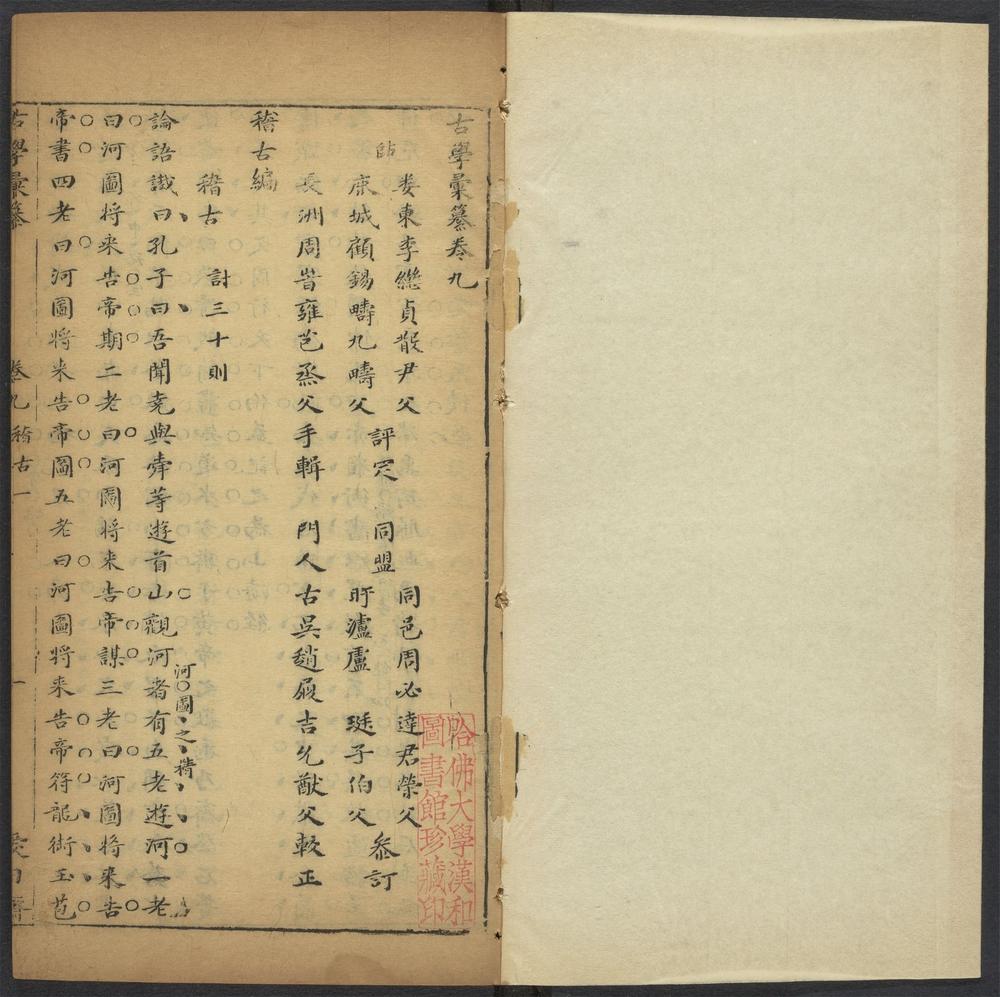 古學彙纂卷九
婁東李繼貞散尹父
鹿城顧錫疇九疇父
評定
同盟
同邑周必達君榮父
盱瀘盧 珽子伯父
叅訂
長洲周 雍芑烝父手輯 門人古吳趙 吉 猷父較正
稽古編
稽古 計三十則
論語讖曰孔子曰吾聞堯與舜等遊首山觀河者有五老遊河一老
河圖之精
曰河圖將來告帝期二老曰河圖將來告帝謀三老曰河圖將來告
帝書四老曰河圖將來告帝圖五老曰河圖將來告帝符龍銜玉苞
古學彙纂 卷九 稽古一 一
哈佛大學漢和
圖書館珍藏印